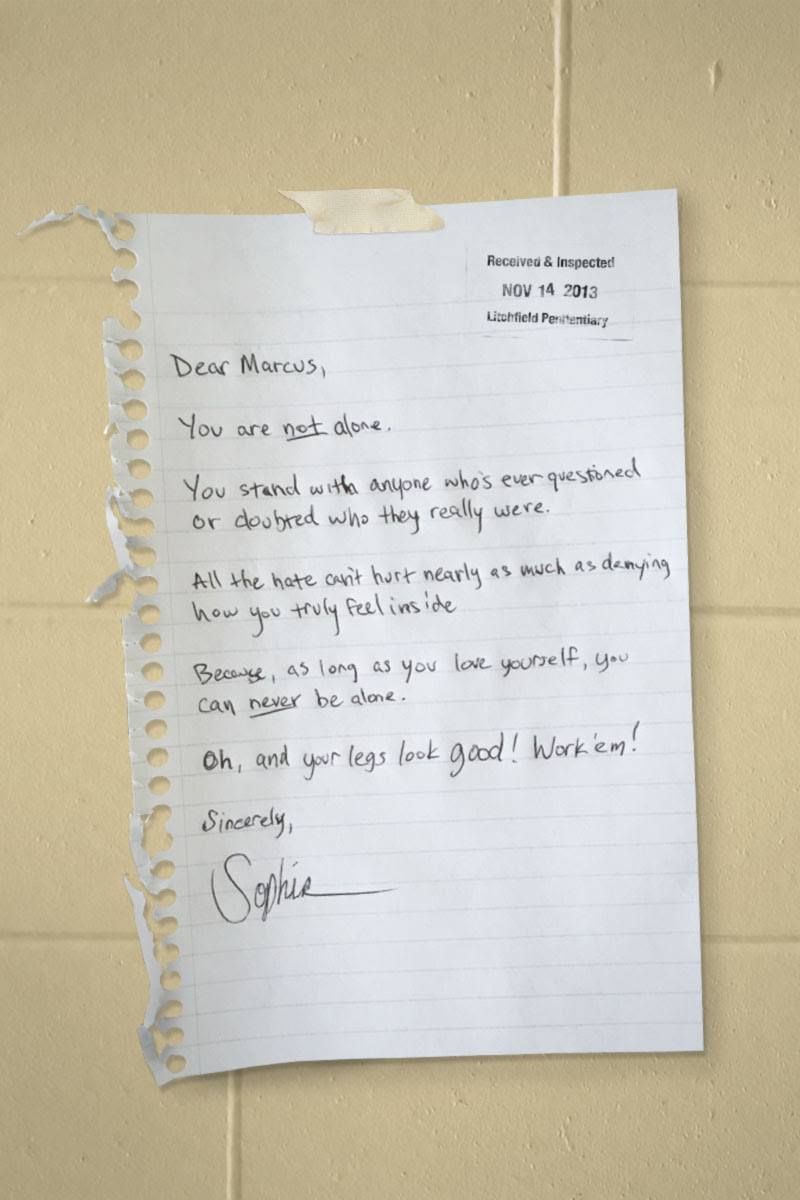 Received & Inspected
NOV 14 2013
Litchfield Penitentiary
Dear Marcus,
You are not alone.
You stand with anyone who's ever questioned
or doubted who they really were.
All the hate can't hurt nearly as much as denying
how you truly feel inside
Because, as long as you love yourself, you
can never be alone.
Oh, and your legs look good! Work 'em!
Sincerely,
Sophia